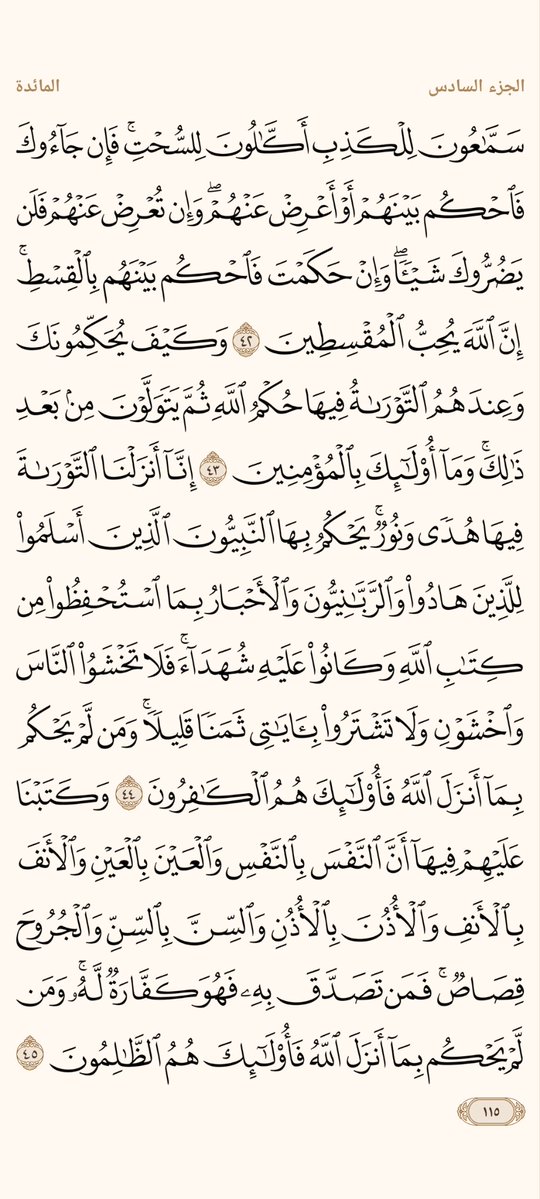 الجزء السادس
المائدة
سَمَّٰعُونَ لِلۡكَذِبِ أَكَّٰلُونَ لِلسُّحۡتِۚ فَإِن جَآءُوكَ
فَٱحۡكُم بَيۡنَهُمۡ أَوۡ أَعۡرِضۡ عَنۡهُمۡۖ وَإِن تُعۡرِضۡ عَنۡهُمۡ فَلَن
يَضُرُّوكَ شَيۡـٔٗاۖ وَإِنۡ حَكَمۡتَ فَٱحۡكُم بَيۡنَهُم بِٱلۡقِسۡطِۚ
إِنَّ ٱللَّهَ يُحِبُّ ٱلۡمُقۡسِطِينَ ٤٢ وَكَيۡفَ يُحَكِّمُونَكَ
وَعِندَهُمُ ٱلتَّوۡرَىٰةُ فِيهَا حُكۡمُ ٱللَّهِ ثُمَّ يَتَوَلَّوۡنَ مِنۢ بَعۡدِ
ذَٰلِكَۚ وَمَآ أُوْلَٰٓئِكَ بِٱلۡمُؤۡمِنِينَ ٤٣ إِنَّآ أَنزَلۡنَا ٱلتَّوۡرَىٰةَ
فِيهَا هُدٗى وَنُورٞۚ يَحۡكُمُ بِهَا ٱلنَّبِيُّونَ ٱلَّذِينَ أَسۡلَمُواْ
لِلَّذِينَ هَادُواْ وَٱلرَّبَّٰنِيُّونَ وَٱلۡأَحۡبَارُ بِمَا ٱسۡتُحۡفِظُواْ مِن
كِتَٰبِ ٱللَّهِ وَكَانُواْ عَلَيۡهِ شُهَدَآءَۚ فَلَا تَخۡشَوُاْ ٱلنَّاسَ
وَٱخۡشَوۡنِ وَلَا تَشۡتَرُواْ بِـَٔايَٰتِي ثَمَنٗا قَلِيلٗاۚ وَمَن لَّمۡ يَحۡكُم
بِمَآ أَنزَلَ ٱللَّهُ فَأُوْلَٰٓئِكَ هُمُ ٱلۡكَٰفِرُونَ ٤٤ وَكَتَبۡنَا
عَلَيۡهِمۡ فِيهَآ أَنَّ ٱلنَّفۡسَ بِٱلنَّفۡسِ وَٱلۡعَيۡنَ بِٱلۡعَيۡنِ وَٱلۡأَنفَ
بِٱلۡأَنفِ وَٱلۡأُذُنَ بِٱلۡأُذُنِ وَٱلسِّنَّ بِٱلسِّنِّ وَٱلۡجُرُوحَ
قِصَاصٞۚ فَمَن تَصَدَّقَ بِهِۦ فَهُوَ كَفَّارَةٞ لَّهُۥۚ وَمَن
لَّمۡ يَحۡكُم بِمَآ أَنزَلَ ٱللَّهُ فَأُوْلَٰٓئِكَ هُمُ ٱلظَّٰلِمُونَ ٤٥
١١٥